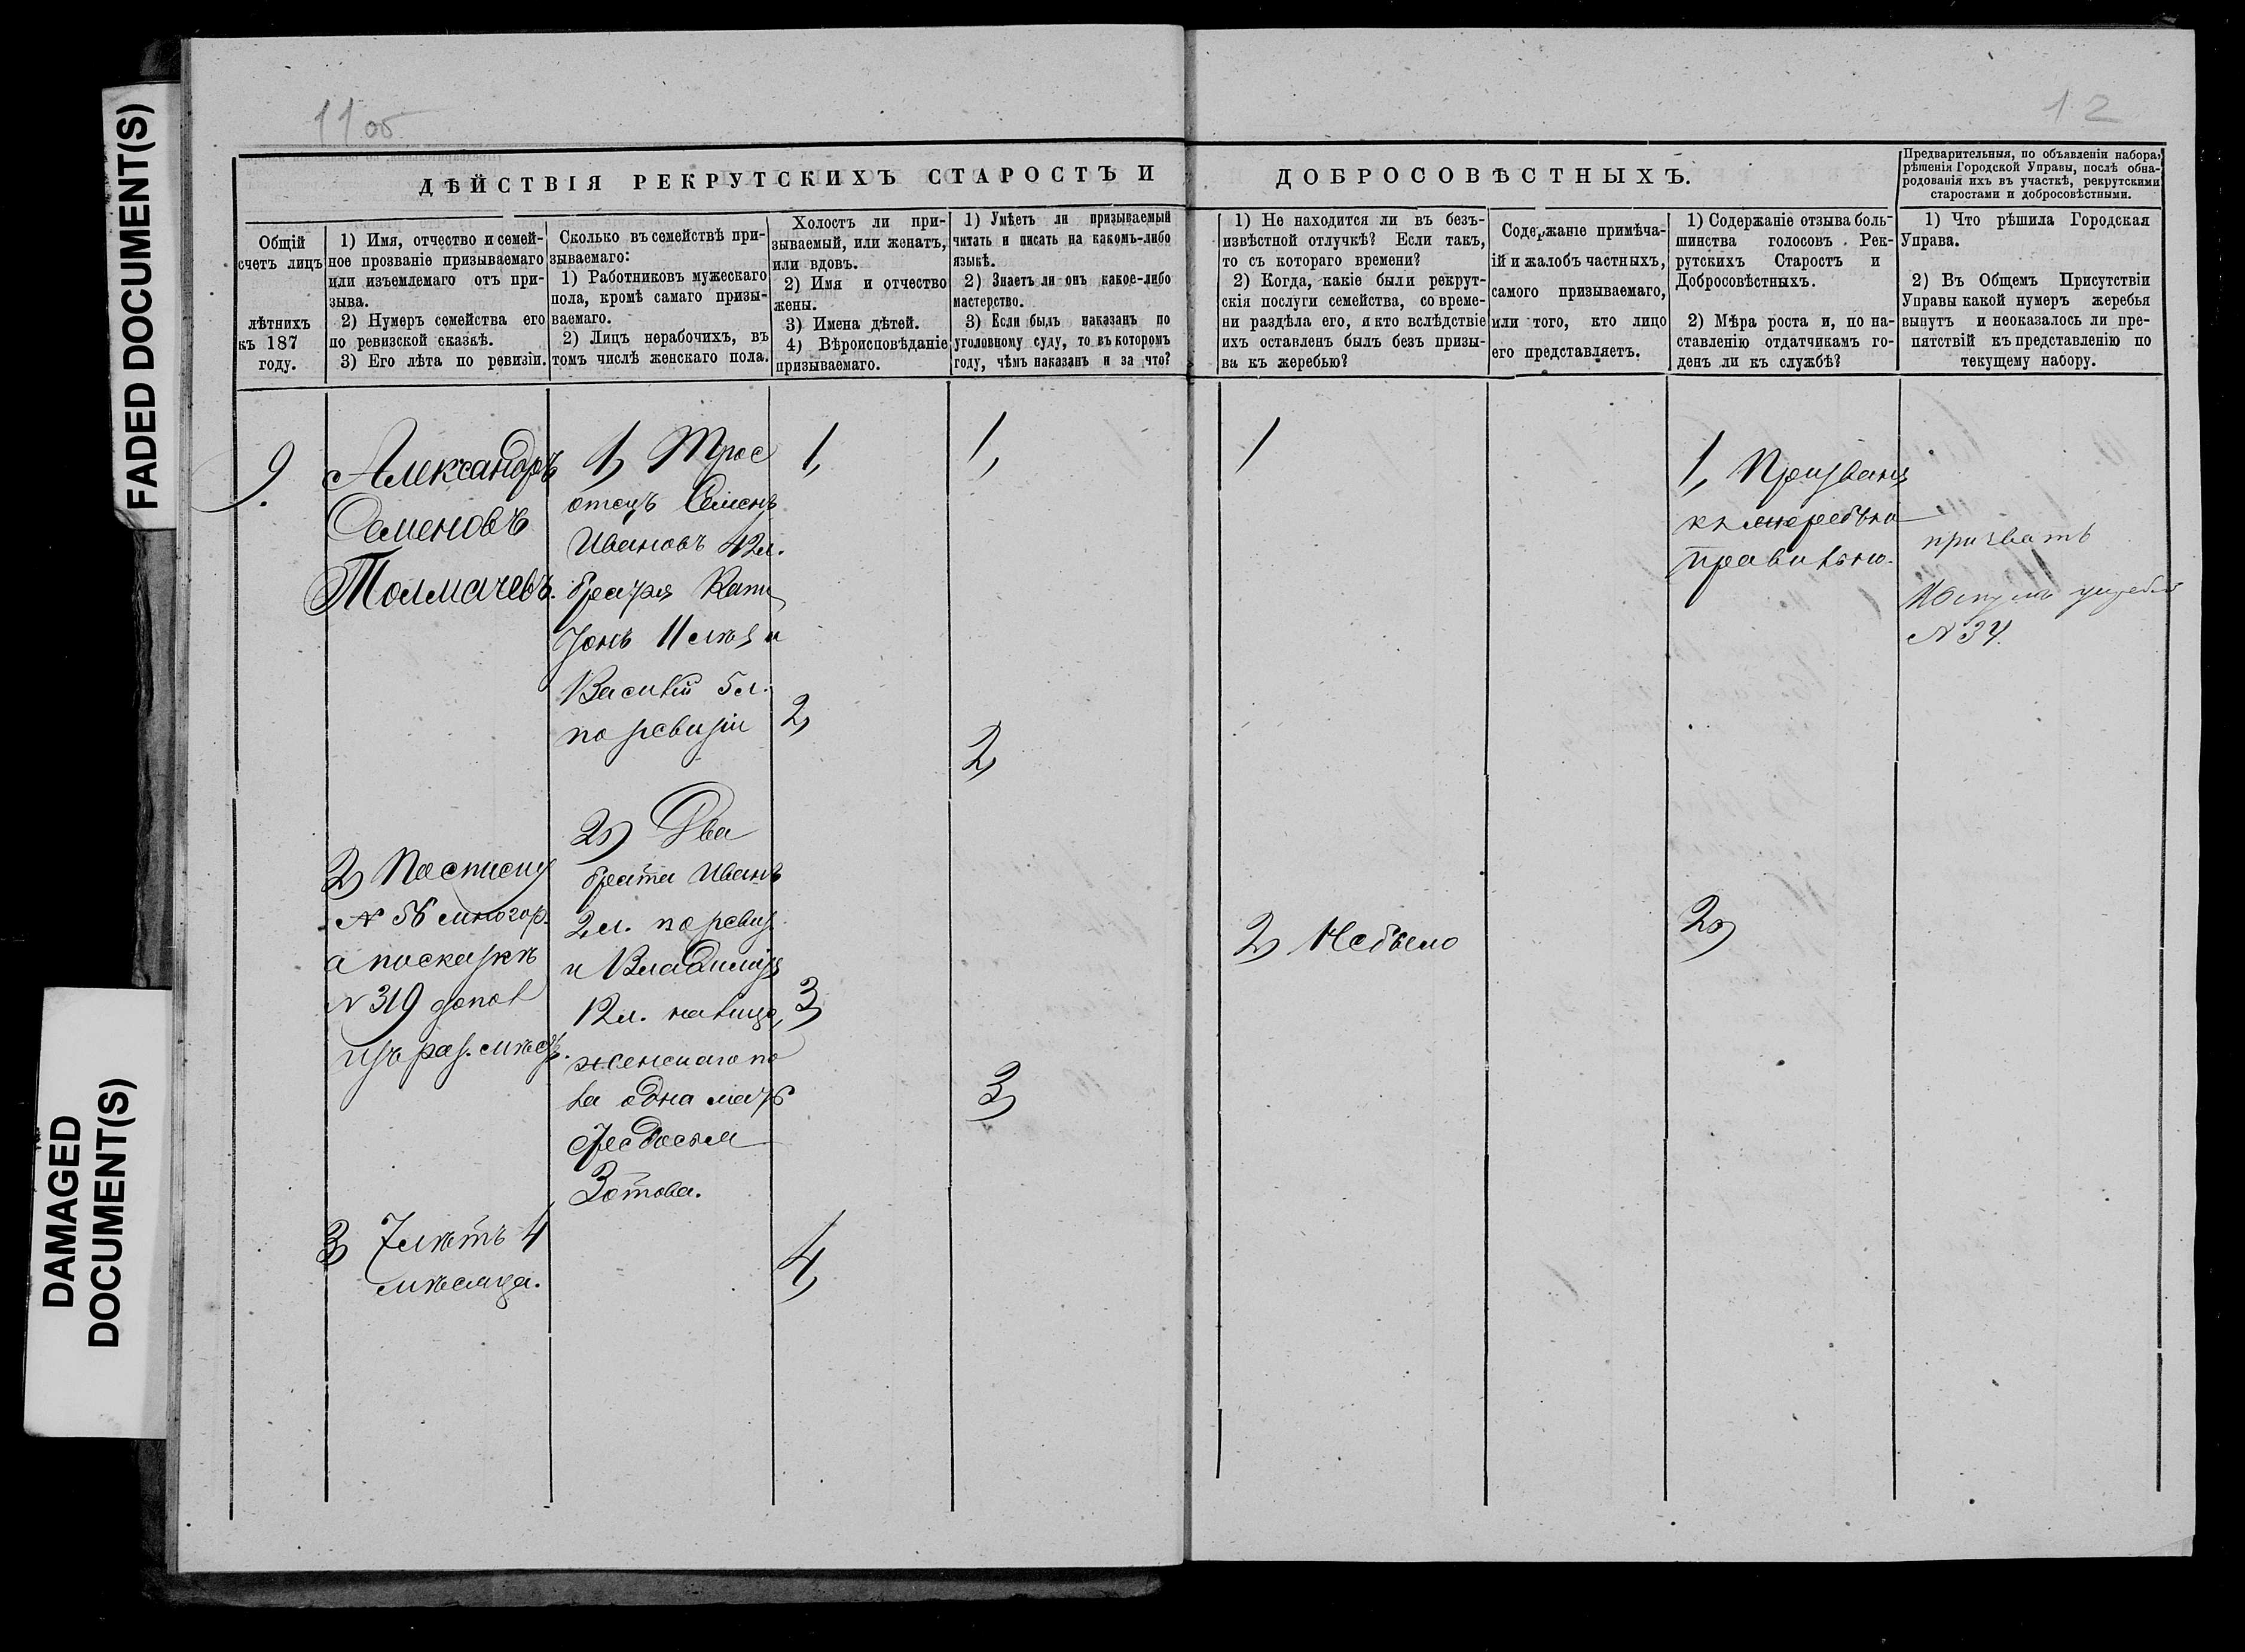 FADED DOCUMENT(S)
DAMAGED
DOCUMENT(S)
11 об
12
ДѢЙСТВІЯ РЕКРУТСКИХЪ СТАРОСТЪ И
ДОБРОСОВѢСТНЫХЪ.
Предварительныя, по объявленіи набора,
рѣшенія Городской Управы, послѣ обна-
родованія ихъ въ участкѣ, рекрутскими
старостами и добросовѣстными.
Общій
счетъ лицъ
лѣтнихъ
къ 187
году.
1) Имя, отчество и семей-
ное прозваніе призываемаго
или изъемлемаго отъ при-
зыва.
2) Нумеръ семейства его
по ревизской сказкѣ.
3) Его лѣта по ревизіи.
Сколько въ семействѣ при-
зываемаго:
1) Работниковъ мужескаго
пола, кромѣ самаго призы-
ваемаго.
2) Лицъ нерабочихъ, въ
томъ числѣ женскаго пола.
Холостъ ли при-
зываемый, или женатъ,
или вдовъ.
2) Имя и отчество
жены.
3) Имена дѣтей.
4) Вѣроисповѣданіе
призываемаго.
1) Умѣетъ ли призываемый
читать и писать на какомъ-либо
языкѣ.
2) Знаетъ ли онъ какое-либо
мастерство.
3) Если былъ наказанъ по
уголовному суду, то въ которомъ
году, чѣмъ наказанъ и за что?
1) Не находится ли въ безъ-
извѣстной отлучкѣ? Если такъ,
то съ котораго времени?
2) Когда, какіе были рекрут-
скія послуги семейства, со време-
ни раздѣла его, я кто вслѣдствіе
ихъ оставленъ былъ безъ призы-
ва къ жеребью?
Содержаніе примѣча-
ій и жалобъ частныхъ,
самого призываемаго,
или того, кто лицо
его представляетъ.
1) Содержаніе отзыва боль-
шинства голосовъ Рек-
рутскихъ Старостъ и
Добросовѣстныхъ.
2) Мѣра роста и, по на-
ставленію отдатчикамъ го-
денъ ли къ службѣ?
1) Что рѣшила Городская
Управа.
2) Въ Общемъ Присутствіи
Управы какой нумеръ жеребья
вынутъ и неоказалось ли пре-
пятствій къ представленію по
текущему набору.
9.
Александръ
Семеновъ
Толмачевъ.
2) По списку
№ 56 многор.
а по сказкѣ
№ 319 допол
изъ раз. мѣст.
3) 7 лѣтъ 4
мѣсяца.
1) Трое
отецъ Семенъ
Ивановъ 42 л.
братья Капи
тонъ 11 мѣс и
Василій 5 л.
по ревизіи
2) Два
брата Иванъ
2 л. по ревиз.
и Владиміръ
12 л. на лицо,
женскаго по
ла одна мать
Федосья
Зотова.
1,
2,
3,
4,
1,
2,
3,
1
2) Небыло
1, Призванъ
къ жеребью
правильно.
2)
призвать
№ 34.